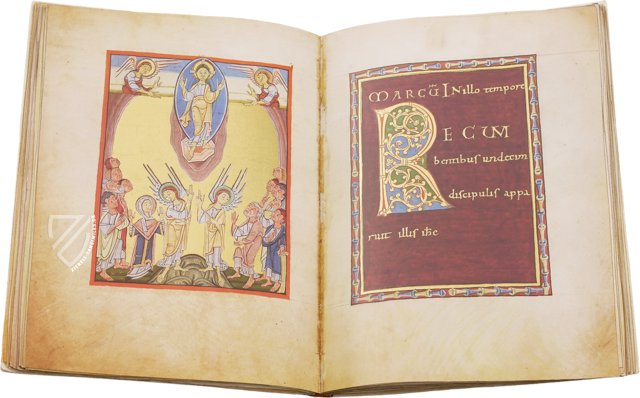 MARCŪ IN illo tempore
RECUM
bentibus undecim
discipulis appa
ruit illis ihc